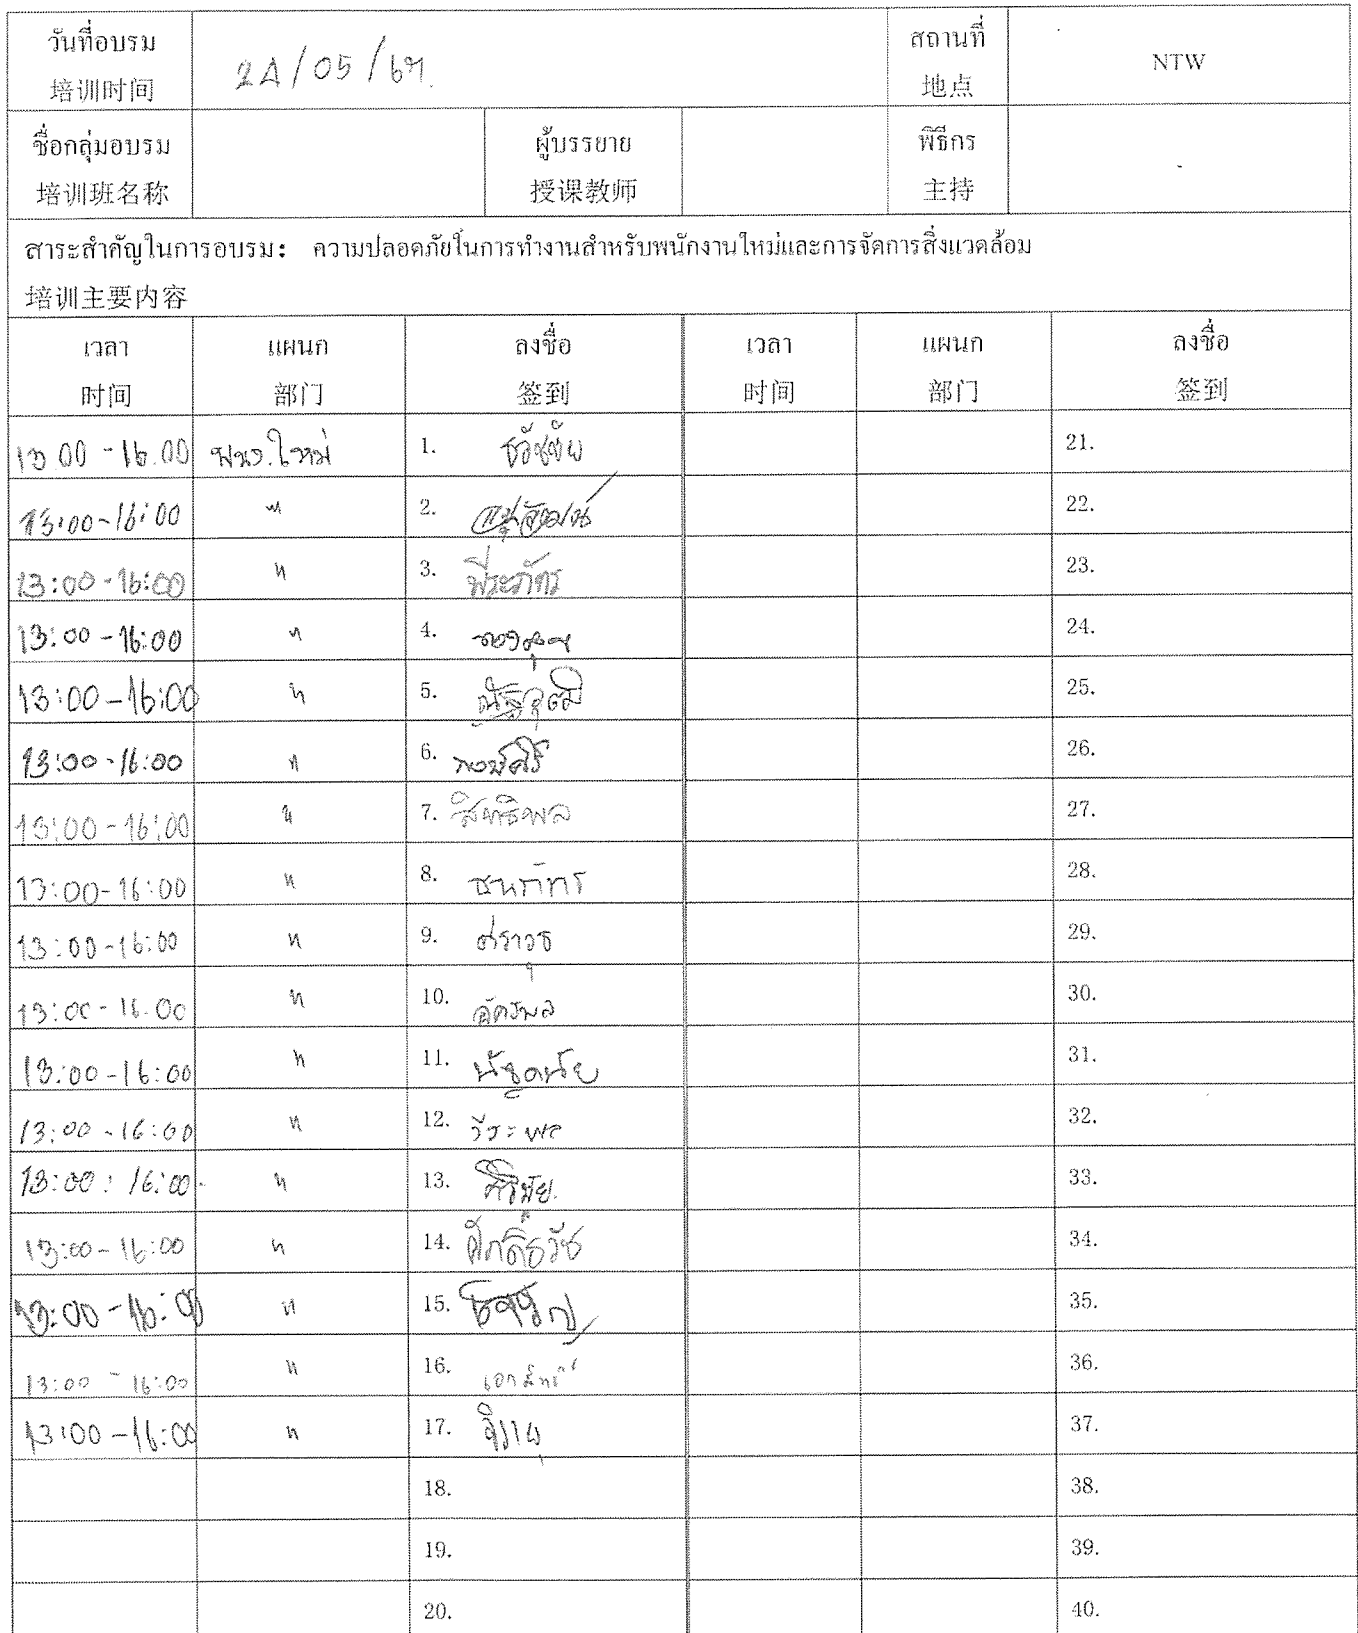 วันที่อบรม
培训时间
24/05/67.
สถานที่
地点
NTW
ชื่อกลุ่มอบรม
培训班名称
ผู้บรรยาย
授课教师
พิธีกร
主持
สาระสำคัญในการอบรม: ความปลอดภัยในการทำงานสำหรับพนักงานใหม่และการจัดการสิ่งแวดล้อม
培训主要内容
เวลา แผนก ลงชื่อ เวลา แผนก ลงชื่อ
时间 部门 签到 时间 部门 签到
13 00 - 16.00 พนง.ใหม่ 1. ธวัชชัย 21.
13:00-16:00 " 2. 22.
13:00-16:00 " 3. พีระภัทร 23.
13:00-16:00 " 4. 24.
13:00-16:00 " 5. ณัฐวุฒิ 25.
13:00-16:00 " 6. พงษ์ศิริ 26.
13:00-16:00 " 7. สิทธิพล 27.
13:00-16:00 " 8. ธนภัทร 28.
13:00-16:00 " 9. ศราวุธ 29.
13:00-16.00 " 10. อัครพล 30.
13:00-16:00 " 11. 31.
13:00-16:00 " 12. วีระพล 32.
13:00: 16:00 " 13. ศิริชัย. 33.
13:00-16:00 " 14. ศักดิ์ธวัช 34.
13:00-16:00 " 15. 35.
13:00-16:00 " 16. 36.
13:00-16:00 " 17. จิรายุ 37.
18. 38.
19. 39.
20. 40.